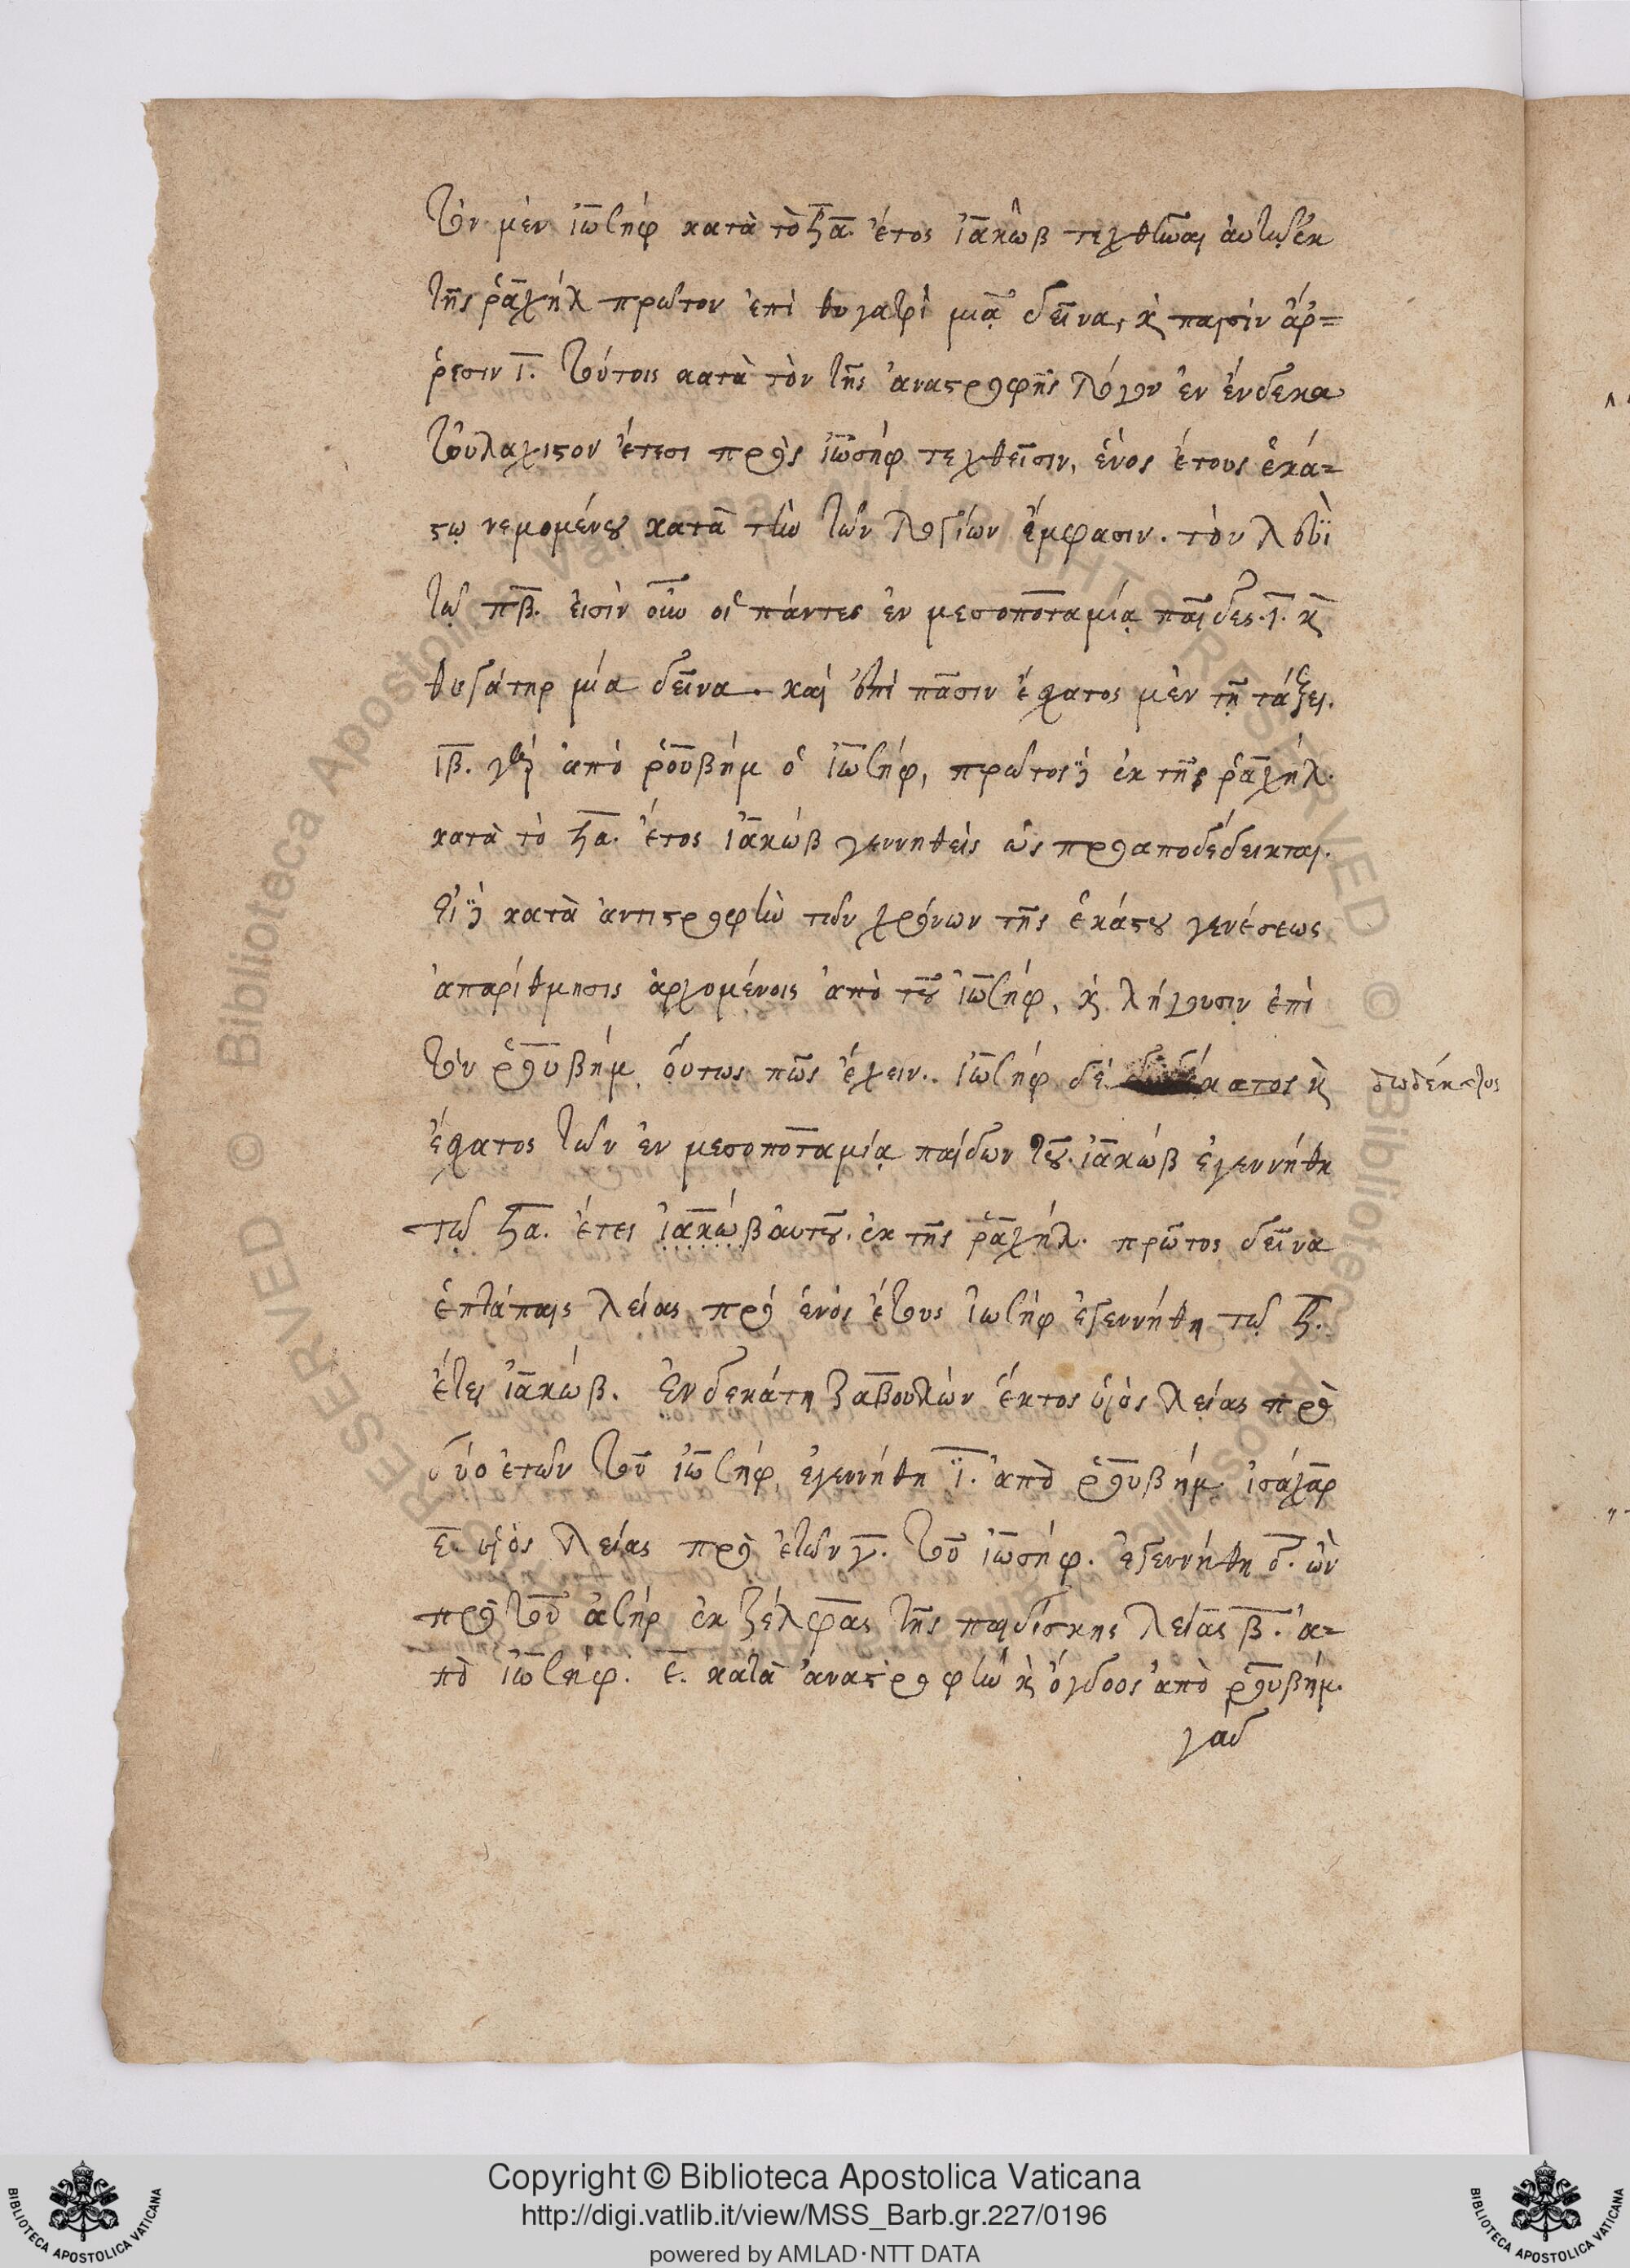 τὸν μὲν ἰωσὴφ κατὰ τὸ ϟα. ἔτος ἰακὼβ τεχθῆναι αὐτῷ ἐκ
τῆς ῥαχὴλ πρῶτον ἐπὶ θυγατρὶ μιᾷ δεῖνα, κ παισὶν ἄρ=
ῥεσιν ι. τούτοις κατὰ τὸν τῆς ἀναστροφῆς λόγον ἐν ἕνδεκα
τοὐλάχιστον ἔτεσι πρὸς ἰωσὴφ τεχθεῖσιν, ἑνὸς ἔτους ἑκά=
στῳ νεμομένου κατὰ τὴν τῶν λογίων ἔμφασιν. τὸν λευῒ
τῷ πβ. εἰσὶν οὖν οἱ πάντες ἐν μεσοποταμίᾳ παῖδες. ι. κ
θυγάτηρ μία δεῖνα. καὶ ἐπὶ πᾶσιν ἔσχατος μὲν τῇ τάξει.
ιβ. ἀπὸ ῥουβὴμ ὁ ἰωσὴφ, πρῶτος δὲ ἐκ τῆς ῥαχὴλ.
κατὰ τὸ ϟα. ἔτος ἰακὼβ γεννηθεὶς ὡς προαποδέδεικται.
εἰ δὲ κατὰ ἀντιστροφὴν τῶν χρόνων τῆς ἑκάστου γενέσεως
ἀπαρίθμησις ἀρχομένοις ἀπὸ τοῦ ἰωσὴφ, κ λήγουσιν ἐπὶ
τὸν ῥουβὴμ, οὕτως πῶς ἔχειν. ἰωσὴφ δὲ κατος κ δωδέκατος
ἔσχατος τῶν ἐν μεσοποταμίᾳ παίδων τοῦ ἰακὼβ ἐγεννήθη
τῷ ϟα. ἔτει ἰακὼβ αὐτοῦ. ἐκ τῆς ῥαχὴλ. πρῶτος δεῖνα
ἑπτάπαις λείας πρὸ ἑνὸς ἔτους ἰωσὴφ ἐγεννήθη τῷ ϟ.
ἔτει ἰακώβ. ἑνδεκάτη ζαβουλὼν ἕκτος υἱὸς λείας πρὸ
δύο ἐτῶν τοῦ ἰωσὴφ, ἐγεννήθη ϊ. ἀπὸ ῥουβὴμ ἰσάχαρ
ε. υἱὸς λείας πρὸ ἐτῶν γ. τοῦ ἰωσὴφ. ἐγεννήθη θ. ὢν
πρὸ τοῦ ἀσὴρ ἐκ ζέλφας τῆς παιδίσκης λείας β. ἀ=
πὸ ἰωσήφ. ε. κατὰ ἀναστροφὴν κ ὄγδοος ἀπὸ ῥουβήμ.
γαδ
Copyright © Biblioteca Apostolica Vaticana
http://digi.vatlib.it/view/MSS_Barb.gr.227/0196
powered by AMLAD·NTT DATA